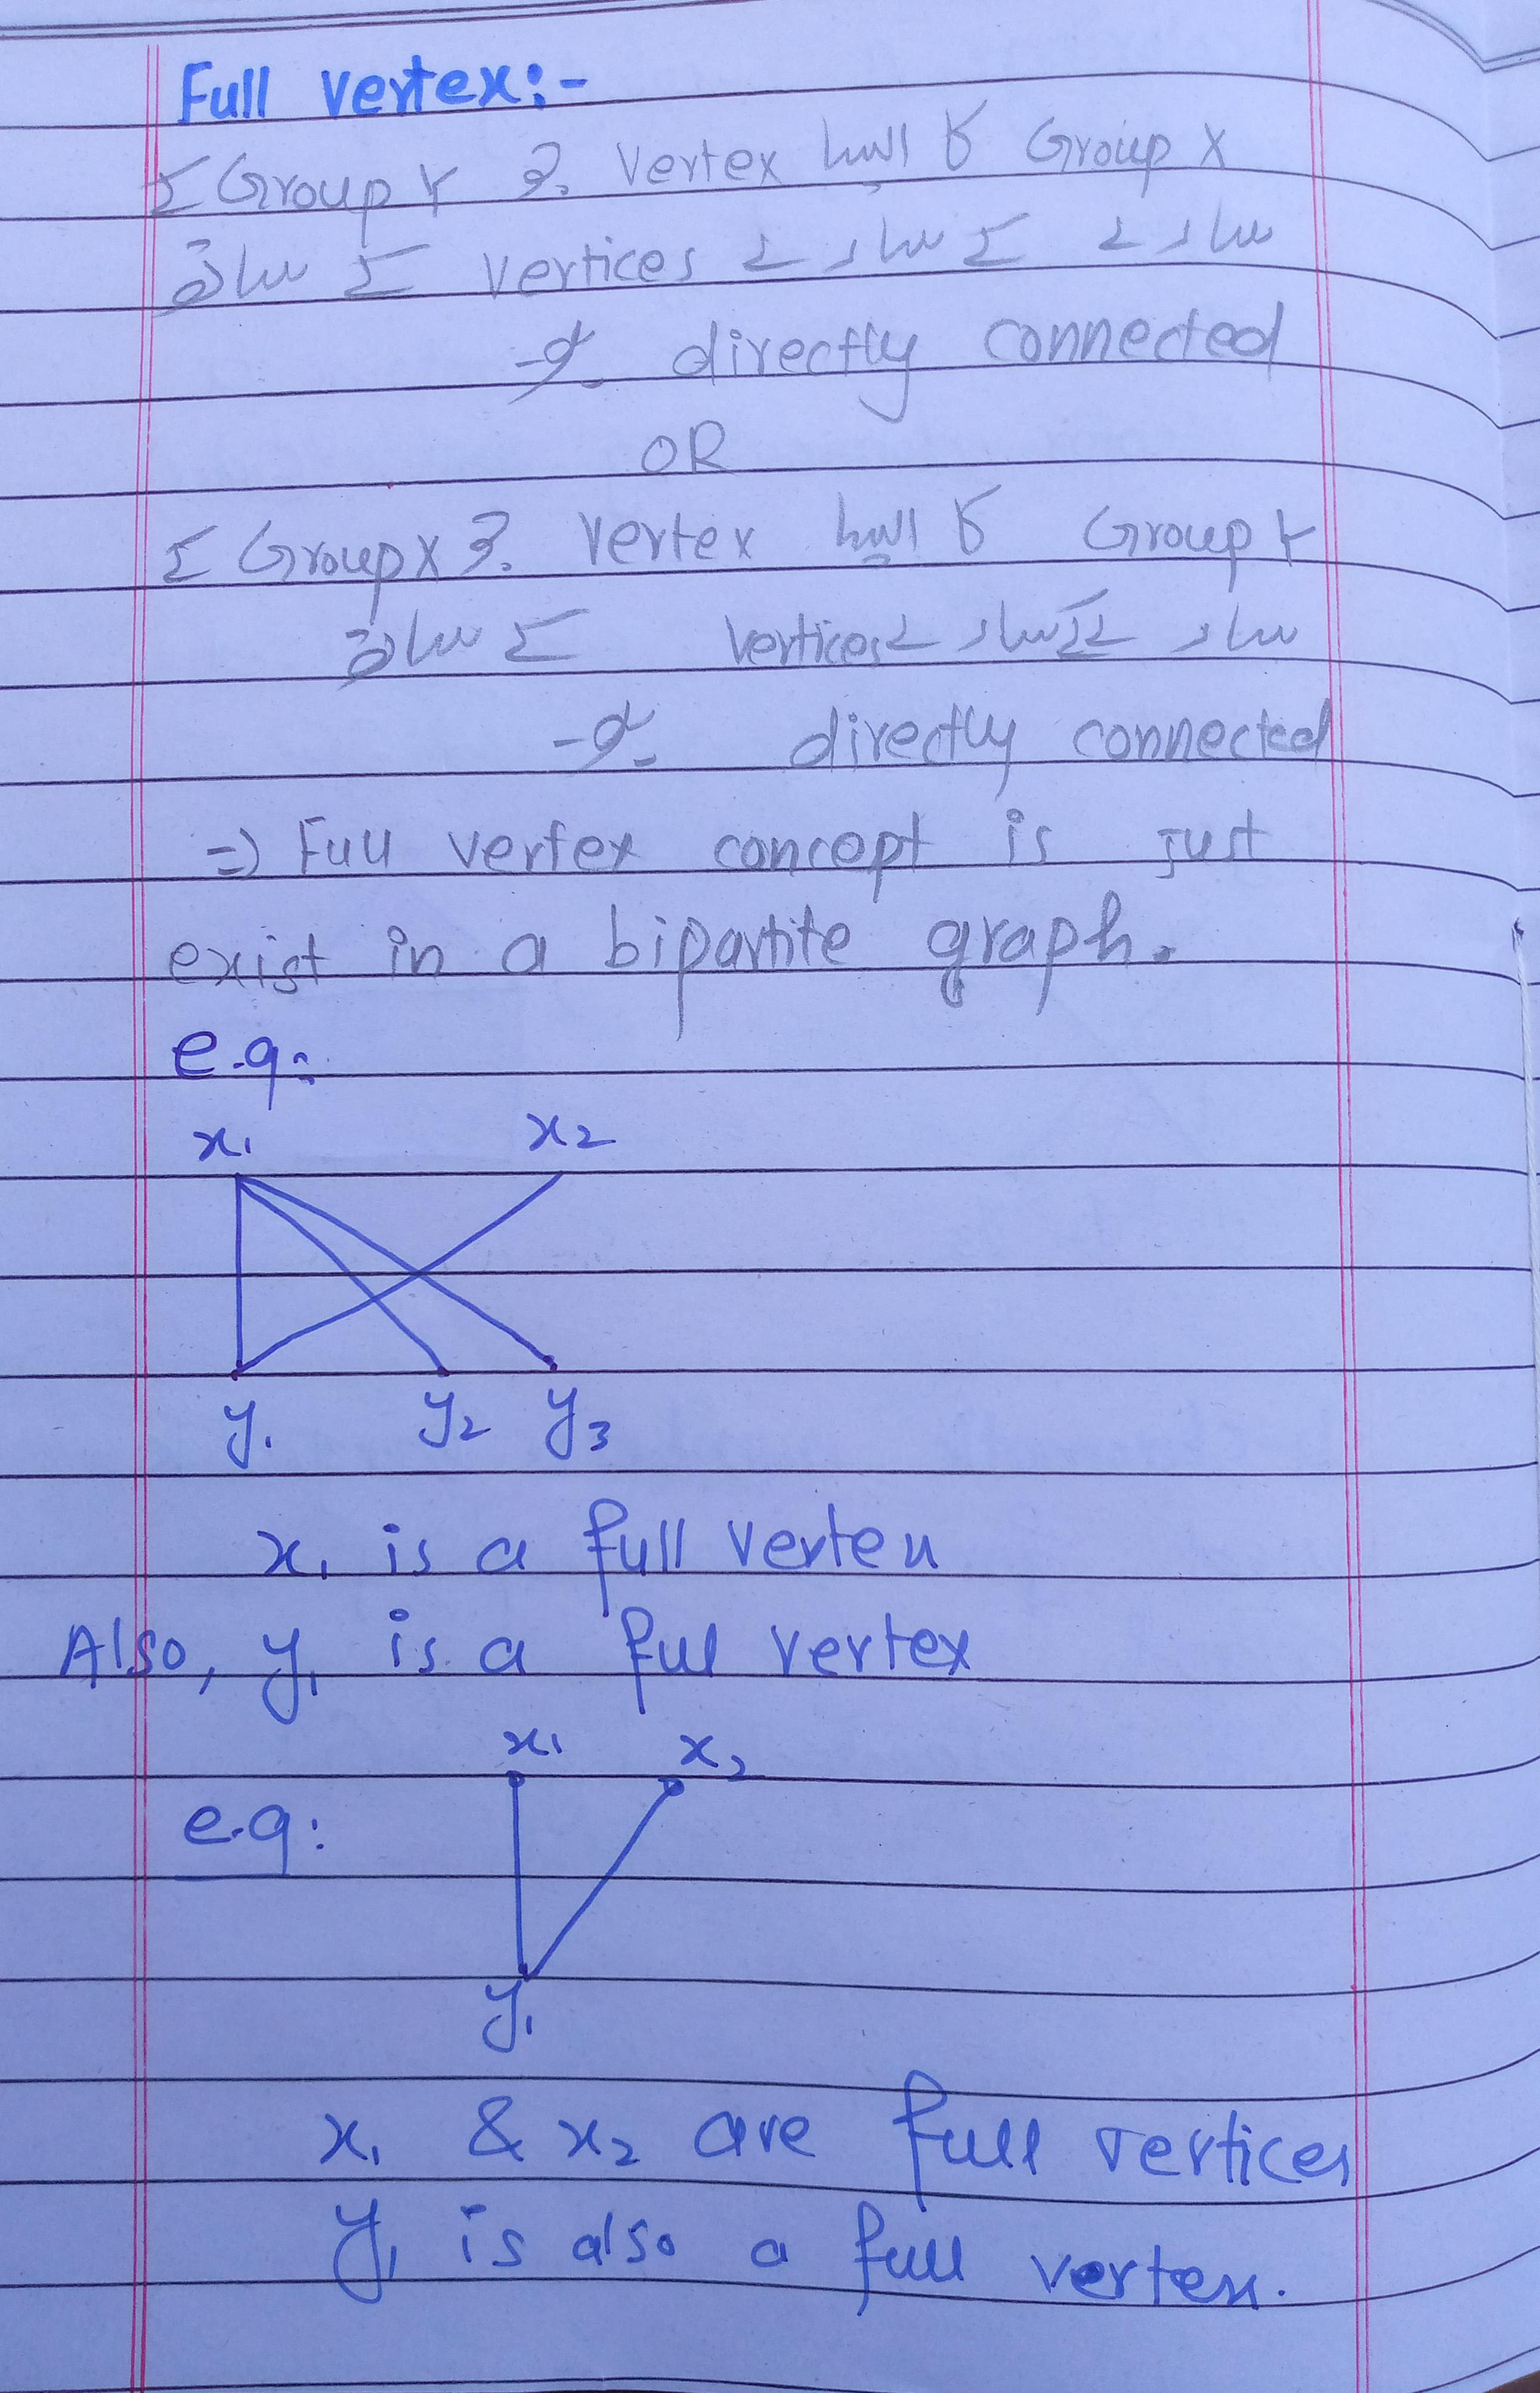 Full vertex:-
Group X کا ایسا vertex جو Group Y کے
سارے کے سارے vertices کے ساتھ
directly connected ہو۔
OR
Group Y کا ایسا vertex جو Group X کے
سارے کے سارے vertices کے ساتھ
directly connected ہو۔
=> Full vertex concept is just
exist in a bipartite graph.
e.g:
x1 x2
y1 y2 y3
x1 is a full vertex
Also, y1 is a ful vertex
x1 x2
e.g:
y1
x1 & x2 are full vertices
y1 is also a full vertex.